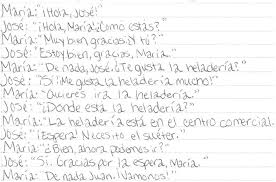 María: "¡Hola, José!"
José: "¡Hola, María! ¿Como estás?"
María: "Muy bien gracias. ¿Y tú?"
José: "Estoy bien, gracias, María."
María: "De nada, José. ¿Te gusta la heladería?"
José: "¡Sí! ¡Me gusta la heladería mucho!"
María: "¿Quieres ir a la heladería."
José: "¿Dónde está la heladería?"
María: "La heladería está en el centro comercial."
José: "¡Espera! Necesito el suéter."
María: "¿Bien, ahora podemos ir?"
José: "Sí. Gracias por la espera, María."
María: "De nada Juan. ¡Vamonos!"